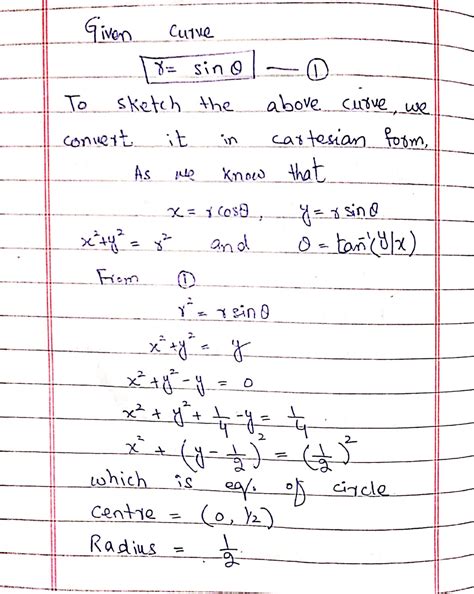 Given Curve
r = sin θ — ①
To sketch the above curve, we
convert it in cartesian form,
As we know that
x = r cosθ, y = r sinθ
x²+y² = r² and θ = tan⁻¹(y/x)
From ①
r² = r sinθ
x²+y² = y
x²+y²-y = 0
x² + y² + 1/4 - y = 1/4
x² + (y - 1/2)² = (1/2)²
which is eqⁿ. of circle
Centre = (0, 1/2)
Radius = 1/2